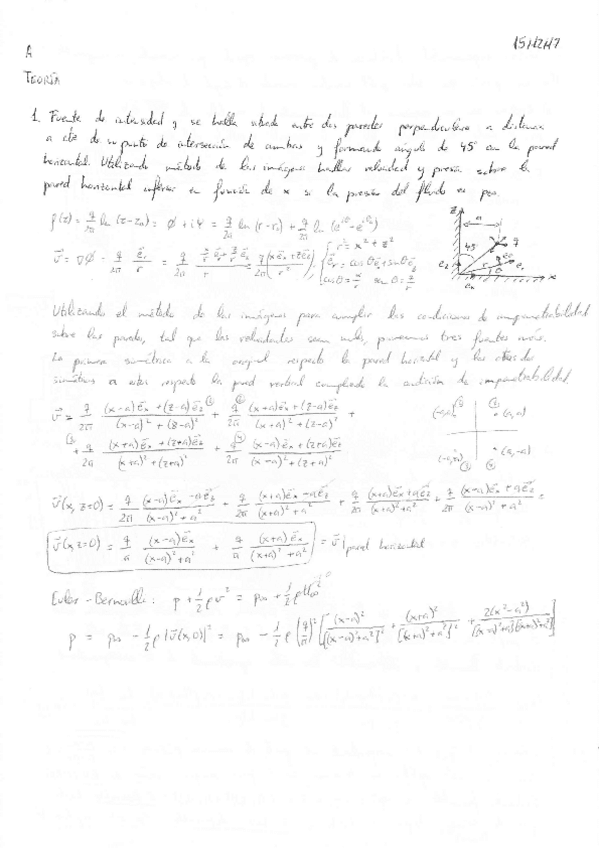 15/12/17
A
TEORÍA
1. Fuente de intensidad q se halla situada entre dos paredes perpendiculares a distancia
a cte de su punto de intersección de ambas y formando ángulo de 45° con la pared
horizontal. Utilizando método de las imágenes hallar velocidad y presión sobre la
pared horizontal inferior en función de x si la presión del fluido es p∞.
f(z) = q/2π ln(z-z₀) = ϕ + iψ = q/2π ln(r-r₀) + q/2π ln(e^iθ - e^iθ₀)
v⃗ = ∇ϕ = q/2π e⃗r/r = q/2π (x/r e⃗x + z/r e⃗z)/r = q/2π ((x e⃗x + z e⃗z)/r²)
{ r² = x² + z²
e⃗r = cosθ e⃗x + senθ e⃗z
cosθ = x/r senθ = z/r
z a 45° q r er ez ex x
Utilizando el método de las imágenes para cumplir las condiciones de impenetrabilidad
sobre las paredes, tal que las velocidades sean nulas, ponemos tres fuentes más.
La primera simétrica a la original respecto la pared horizontal y las otras dos
simétricas a estas respecto la pared vertical cumpliendo la condición de impenetrabilidad.
v⃗ = q/2π ((x-a)e⃗x + (z-a)e⃗z)/((x-a)² + (z-a)²) + q/2π ((x+a)e⃗x + (z-a)e⃗z)/((x+a)² + (z-a)²) +
+ q/2π ((x+a)e⃗x + (z+a)e⃗z)/((x+a)² + (z+a)²) + q/2π ((x-a)e⃗x + (z+a)e⃗z)/((x-a)² + (z+a)²)
(a,a)
(a,-a)
v⃗(x,z=0) = q/2π ((x-a)e⃗x - a e⃗z)/((x-a)² + a²) + q/2π ((x+a)e⃗x - a e⃗z)/((x+a)² + a²) + q/2π ((x+a)e⃗x + a e⃗z)/((x+a)² + a²) + q/2π ((x-a)e⃗x + a e⃗z)/((x-a)² + a²) =
v⃗(x,z=0) = q/π (x-a)e⃗x/((x-a)² + a²) + q/π (x+a)e⃗x/((x+a)² + a²) = v⃗|pared horizontal
Euler-Bernoulli: p + 1/2 ρv² = p∞ + 1/2 ρU∞²
p = p∞ - 1/2 ρ|v⃗(x,0)|² = p∞ - 1/2 ρ (q/π)² [(x-a)²/[(x-a)²+a²]² + (x+a)²/[(x+a)²+a²]² + 2(x²-a²)/[(x-a)²+a²][(x+a)²+a²]]